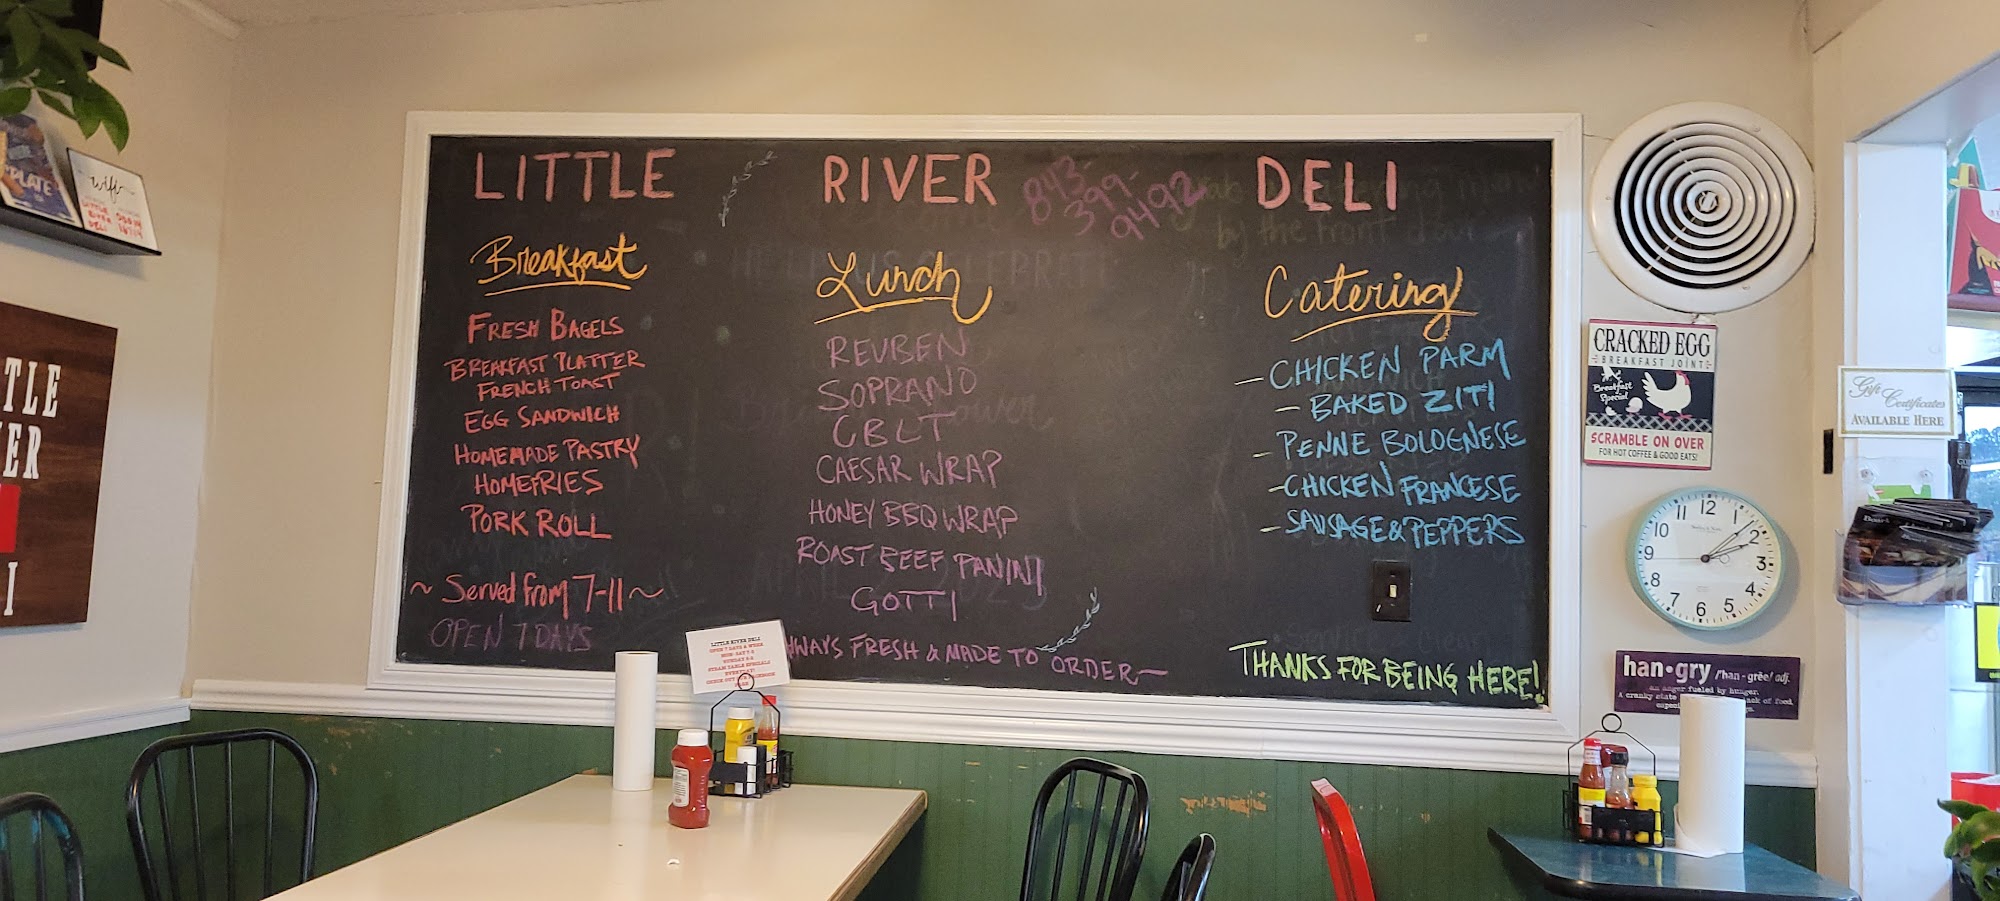 LITTLE RIVER DELI
843-
399-
9492
Breakfast
FRESH BAGELS
BREAKFAST PLATTER
FRENCH TOAST
EGG SANDWICH
HOMEMADE PASTRY
HOMEFRIES
PORK ROLL
~ Served from 7-11 ~
OPEN 7 DAYS
Lunch
REUBEN
SOPRANO
CBLT
CAESAR WRAP
HONEY BBQ WRAP
ROAST BEEF PANINI
GOTTI
ALWAYS FRESH & MADE TO ORDER—
Catering
– CHICKEN PARM
– BAKED ZITI
– PENNE BOLOGNESE
– CHICKEN FRANCESE
– SAUSAGE & PEPPERS
THANKS FOR BEING HERE!
by the front door
wifi
LITTLE
RIVER
DELI
PLATE
TLE
ER
I
LITTLE RIVER DELI
OPEN 7 DAYS A WEEK
STEAM TABLE SPECIALS
EVERYDAY!
CHECK OUT OUR FACEBOOK
CRACKED EGG
BREAKFAST JOINT
Breakfast
Special
SCRAMBLE ON OVER
FOR HOT COFFEE & GOOD EATS!
Gift Certificates
AVAILABLE HERE
12
1
2
3
4
5
6
7
8
9
10
11
han•gry /'han - grēe/ adj.
an anger fueled by hunger.
A cranky state
lack of food,